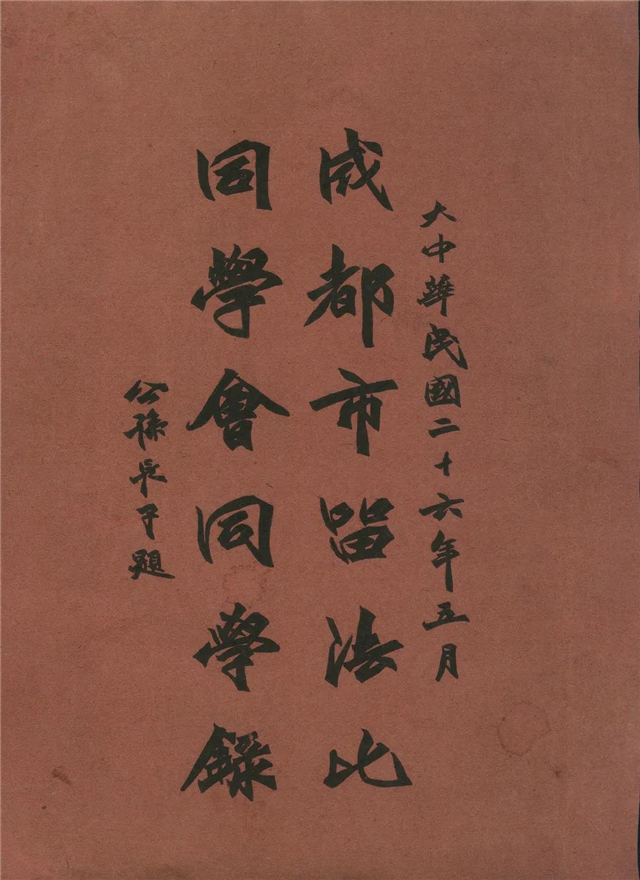 大中華民國二十六年五月
成都市留法比
同學會同學錄
公孫長子題